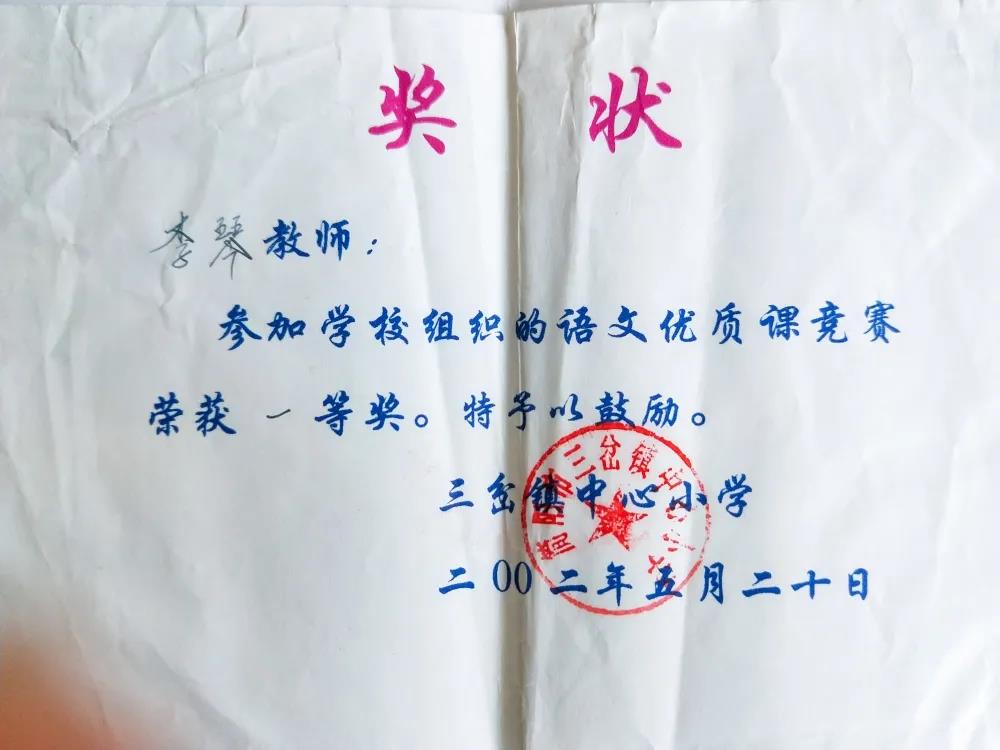 奖状
李琴教师：
参加学校组织的语文优质课竞赛
荣获一等奖。特予以鼓励。
三岔镇中心小学
二00二年五月二十日
三岔镇中心小学